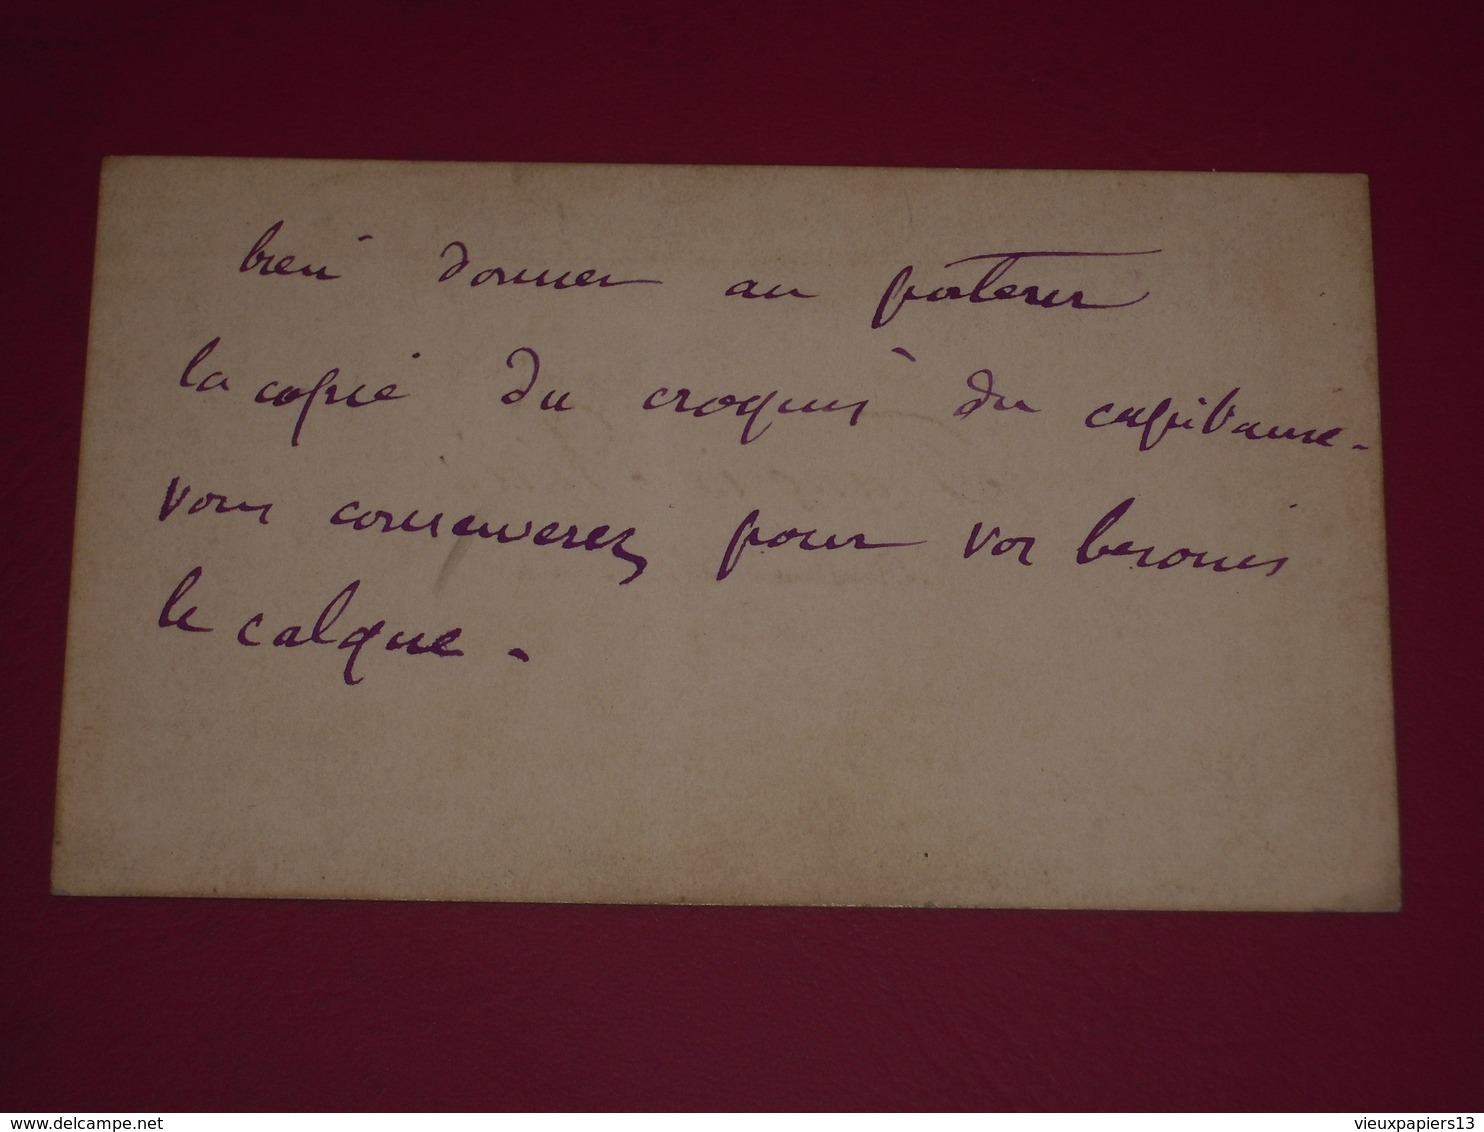 bien donner au porteur
la copie du croquis du capitaine.
vous conserverez pour vos besoins
le calque.
vieuxpapiers13